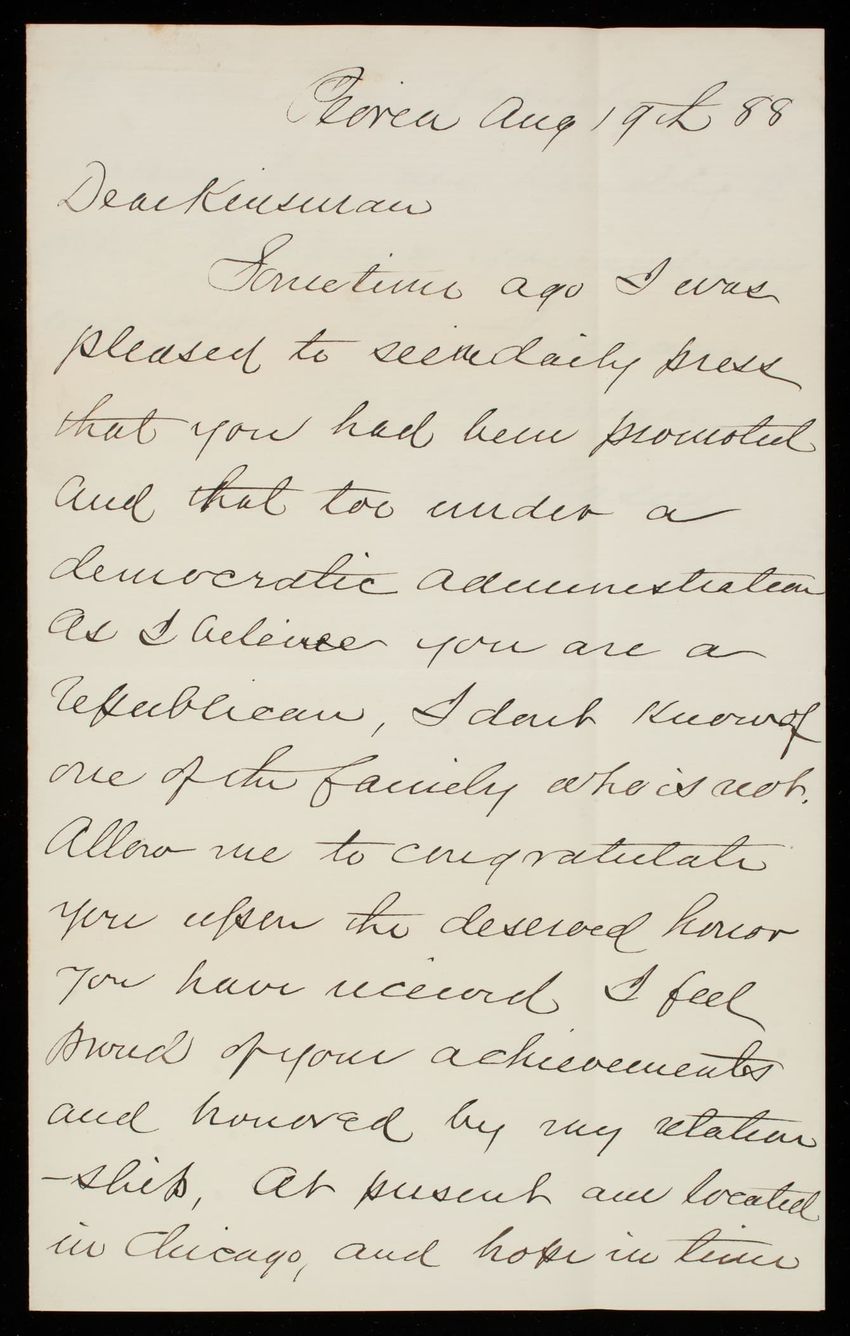 Peoria Aug 19th 88
Dear Kinsman
Sometime ago I was
pleased to see in daily press
that you had been promoted
and that too under a
democratic administration
As I believe you are a
republican, I dont know of
one of the family who is not.
Allow me to congratulate
you upon the deserved honor
you have received I feel
proud of your achievements
and honored by my relation
-ship, At present am located
in Chicago, and hope in time